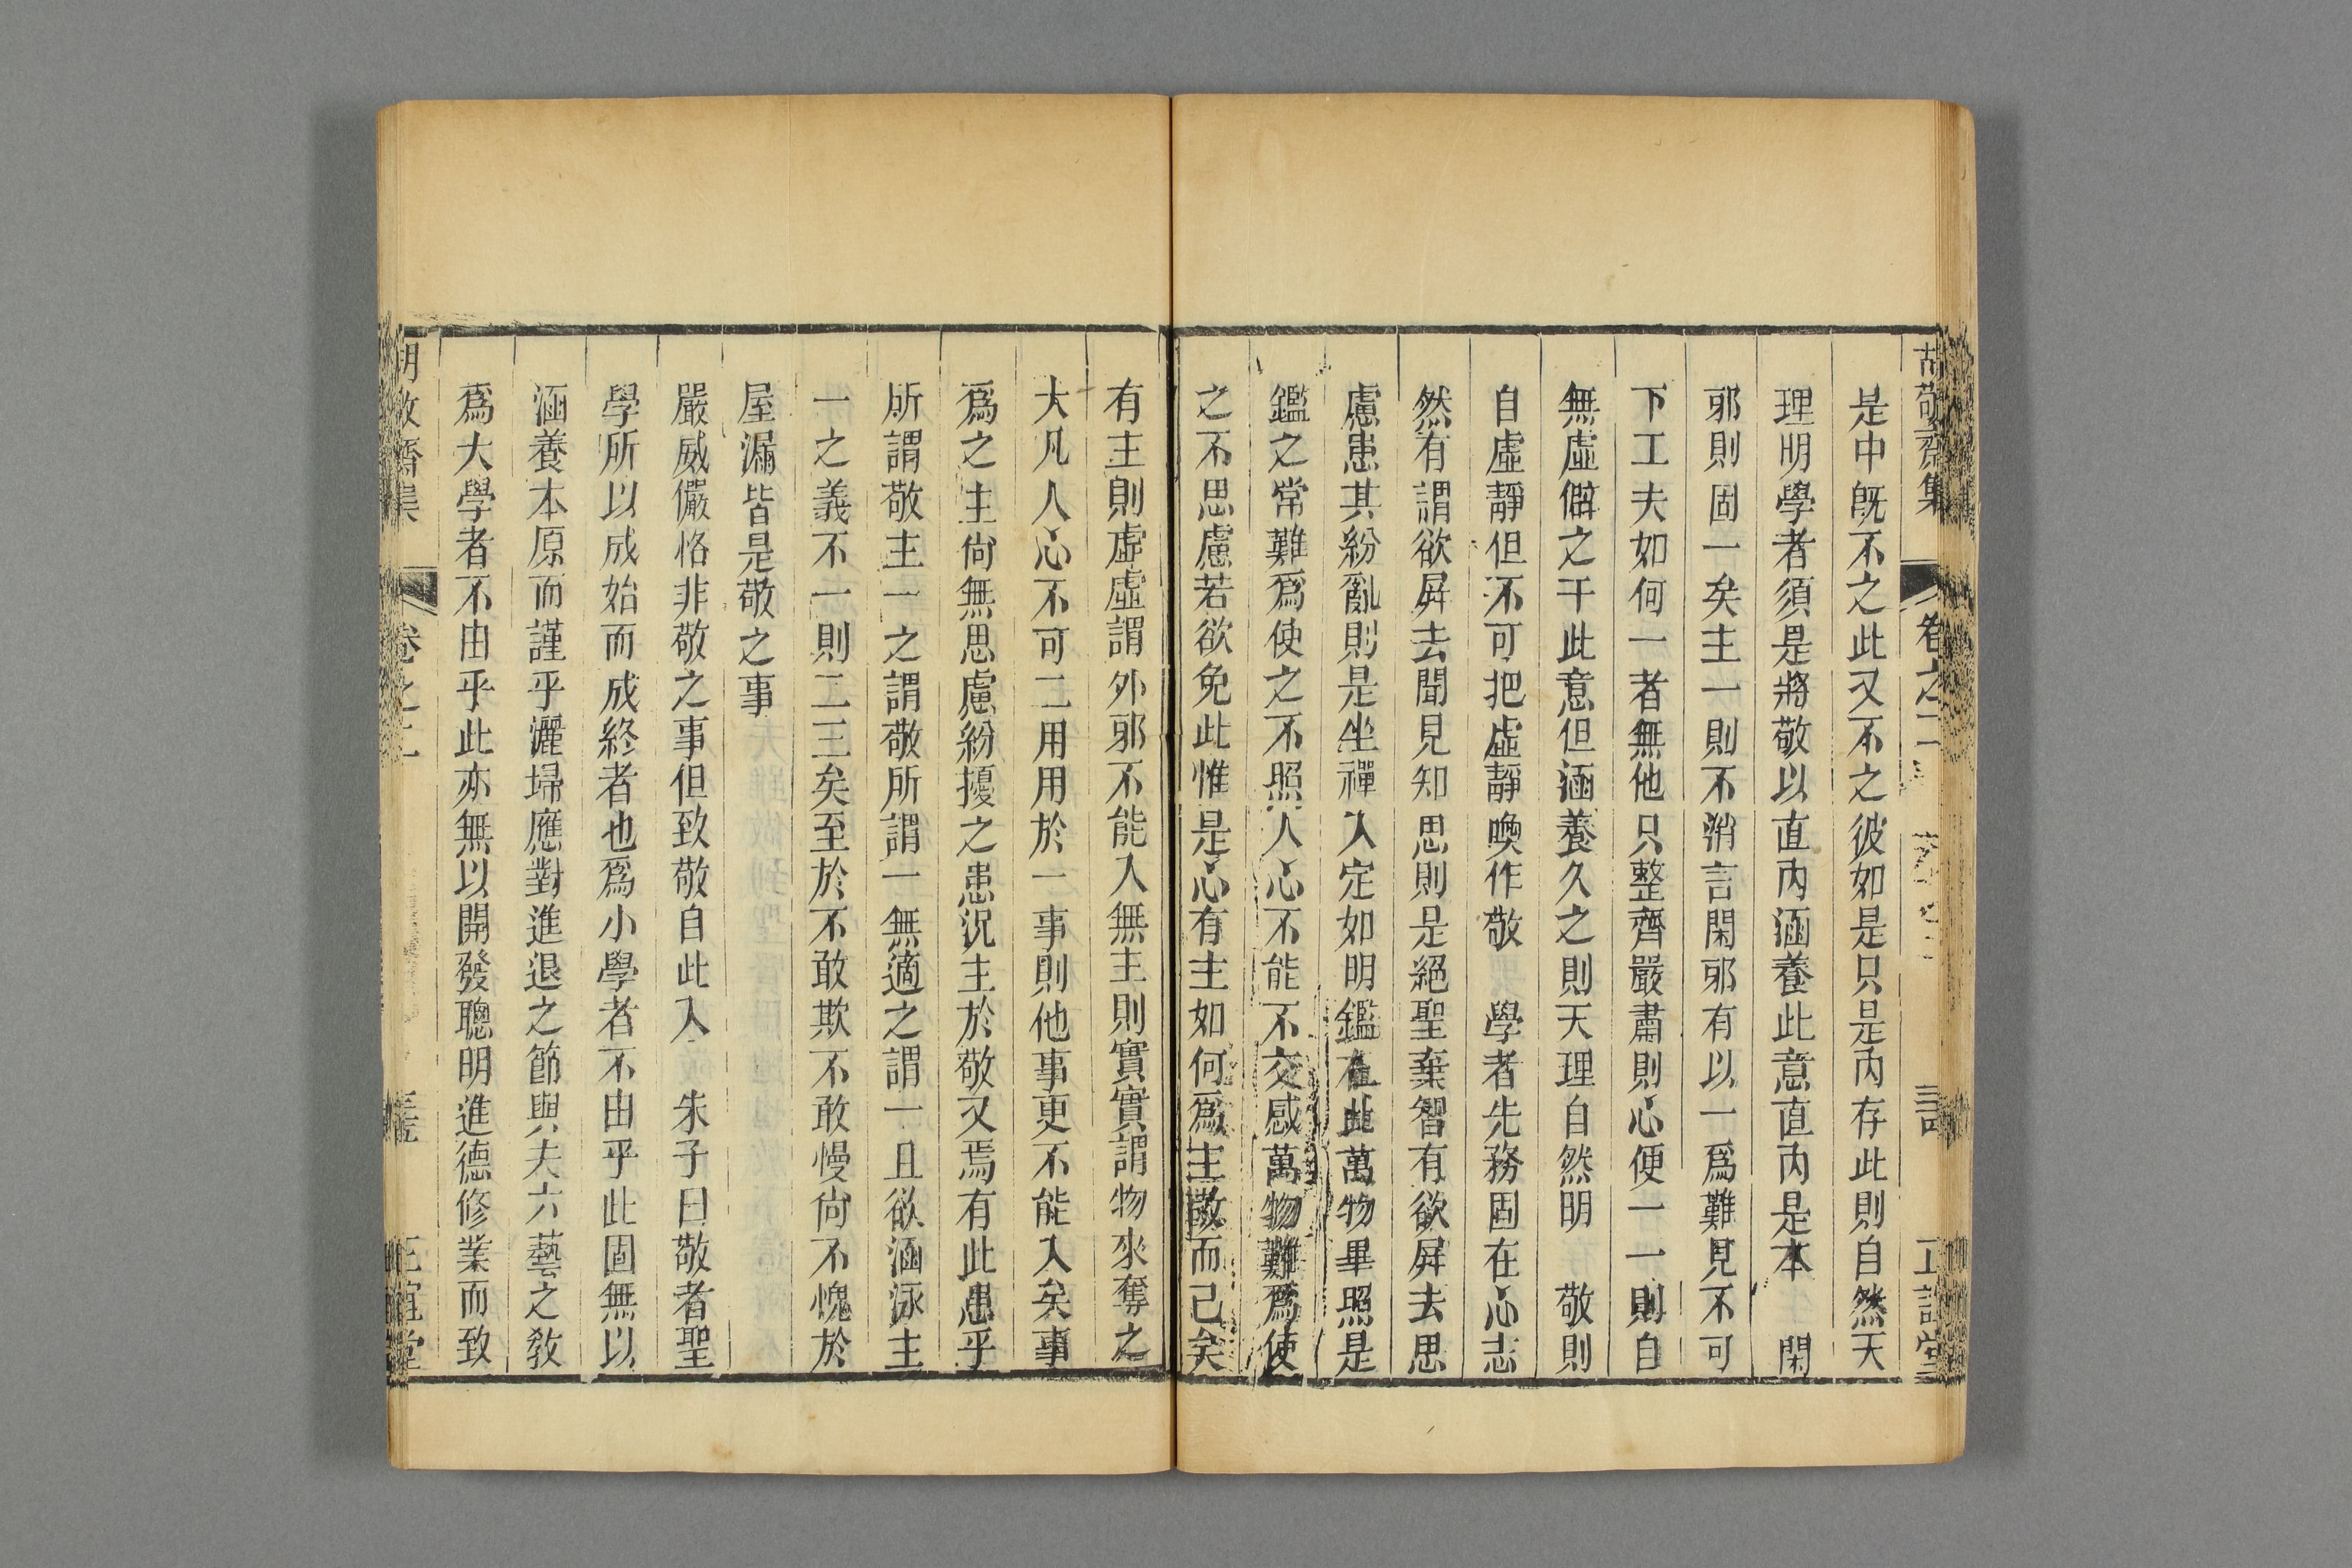 敬齋集 卷之二
是中旣不之此又不之彼如是只是內存此則自然天
理明學者須是將敬以直內涵養此意直內是本 閑
邪則固一矣主一則不消言閑邪有以一爲難見不可
下工夫如何一者無他只整齊嚴肅則心便一一則自
無虛僻之干此意但涵養久之則天理自然明 敬則
自虛靜但不可把虛靜喚作敬 學者先務固在心志
然有謂欲屛去聞見知思則是絕聖棄智有欲屛去思
慮患其紛亂則是坐禪入定如明鑑在此萬物畢照是
鑑之常難爲使之不照人心不能不交感萬物難爲使
之不思慮若欲免此惟是心有主如何爲主敬而已矣
有主則虛虛謂外邪不能入無主則實實謂物來奪之
大凡人心不可二用用於一事則他事更不能入矣事
爲之主尙無思慮紛擾之患況主於敬又焉有此患乎
所謂敬主一之謂敬所謂一無適之謂一且欲涵泳主
一之義不一則二三矣至於不敢欺不敢慢尙不愧於
屋漏皆是敬之事
嚴威儼恪非敬之事但致敬自此入 朱子曰敬者聖
學所以成始而成終者也爲小學者不由乎此固無以
涵養本原而謹乎灑埽應對進退之節與夫六藝之敎
爲大學者不由乎此亦無以開發聰明進德修業而致
胡敬齋集 卷之二 正誼堂